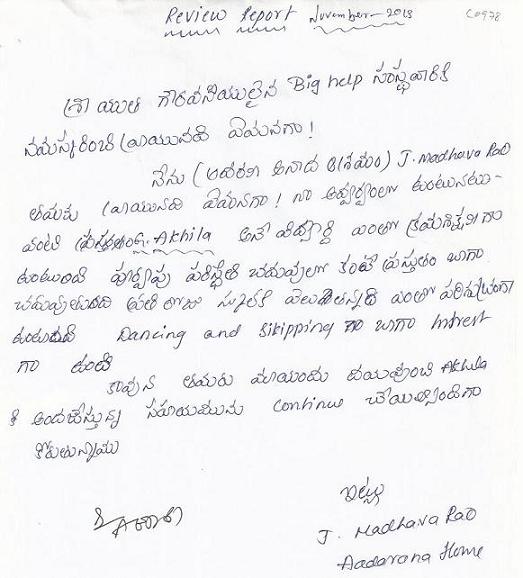 Review Report November-2013 C0978
శ్రీ యుత గౌరవనీయులైన Big help సంస్థవారికి
నమస్కరించి వ్రాయునది ఏమనగా!
నేను (ఆదరణ అనాద ఆశ్రమం) J. Madhava Rao
తమకు వ్రాయునది ఏమనగా! నా ఆధ్వర్యంలో ఉంటునటు-
వంటి ప్రస్తుతం G. Akhila అనే విద్యార్థి ఎంతో క్రమశిక్షణ గా
ఉంటుంది పూర్వపు పరిస్థితి చదువులో కంటే ప్రస్తుతం బాగా
చదువుతుంది ప్రతి రోజు స్కూల్‌కి ఎంతో పరిశుభ్రంగా
ఉంటుంది Dancing and Skipping గా బాగా Intrest
గా ఉంది
కావున తమరు మాయందు దయవుంచి Akhila
కి అందజేస్తున్న సహాయమును Continue చేయవల్సిందిగా
కోరుతున్నాము
ఇట్లు
J. Madhava Rao
Aadarana Home